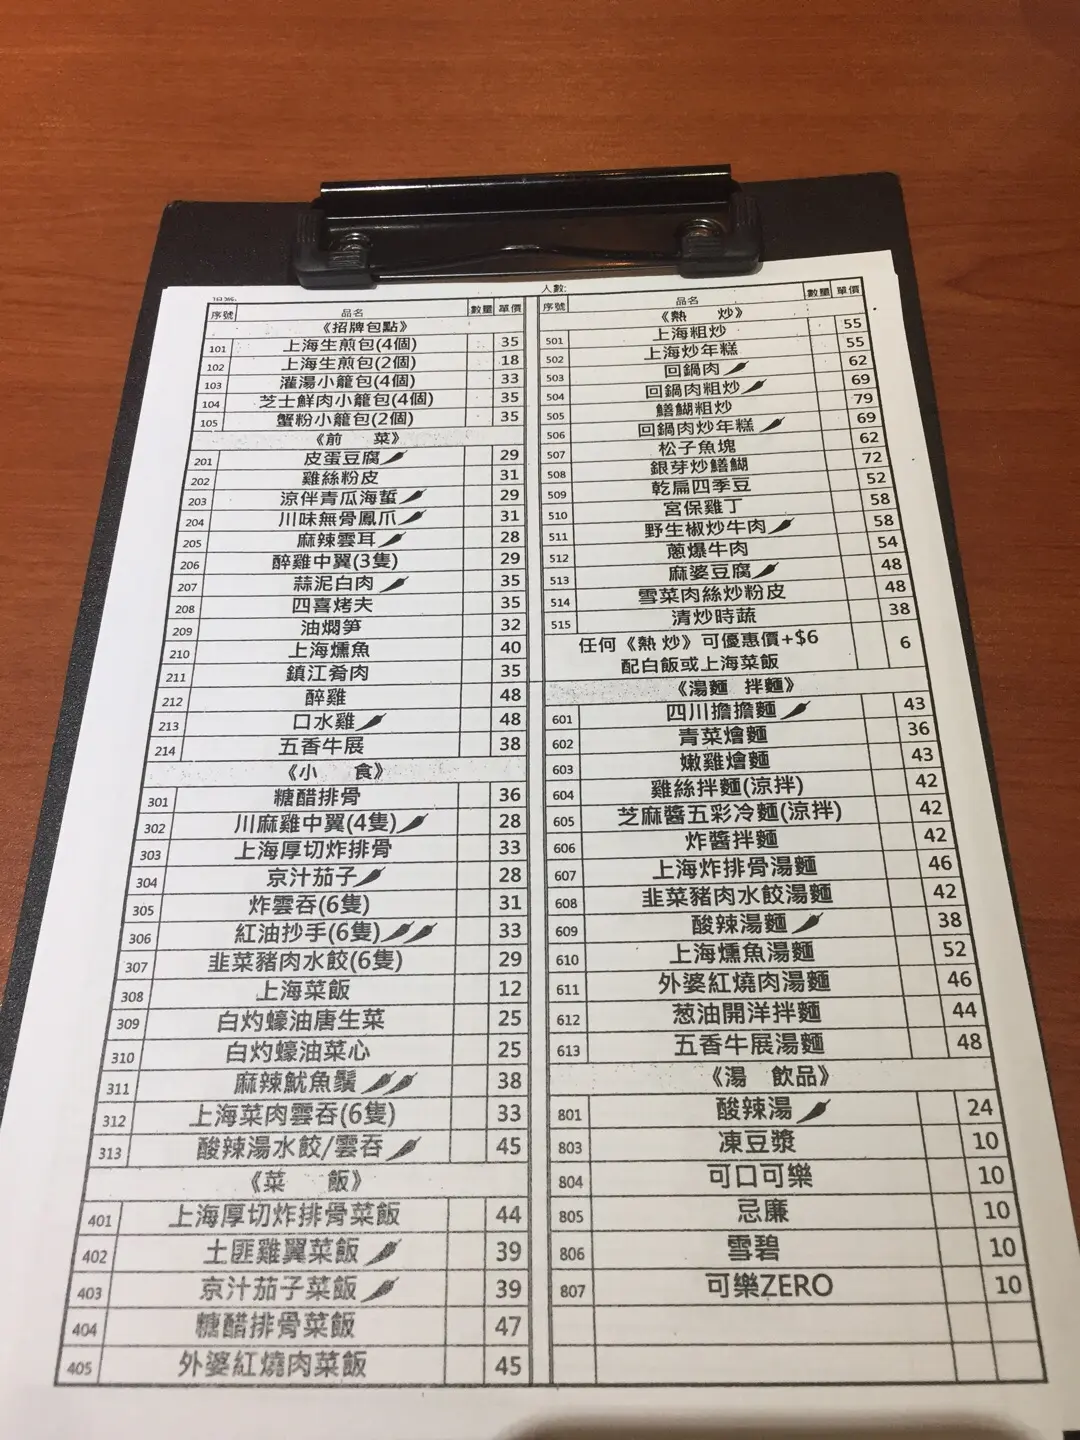 人數:
序號 品名 數量 單價
《招牌包點》
101 上海生煎包(4個) 35
102 上海生煎包(2個) 18
103 灌湯小籠包(4個) 33
104 芝士鮮肉小籠包(4個) 35
105 蟹粉小籠包(2個) 35
《前 菜》
201 皮蛋豆腐 29
202 雞絲粉皮 31
203 涼伴青瓜海蜇 29
204 川味無骨鳳爪 31
205 麻辣雲耳 28
206 醉雞中翼(3隻) 29
207 蒜泥白肉 35
208 四喜烤夫 35
209 油燜筍 32
210 上海燻魚 40
211 鎮江肴肉 35
212 醉雞 48
213 口水雞 48
214 五香牛展 38
《小 食》
301 糖醋排骨 36
302 川麻雞中翼(4隻) 28
303 上海厚切炸排骨 33
304 京汁茄子 28
305 炸雲吞(6隻) 31
306 紅油抄手(6隻) 33
307 韭菜豬肉水餃(6隻) 29
308 上海菜飯 12
309 白灼蠔油唐生菜 25
310 白灼蠔油菜心 25
311 麻辣魷魚鬚 38
312 上海菜肉雲吞(6隻) 33
313 酸辣湯水餃/雲吞 45
《菜 飯》
401 上海厚切炸排骨菜飯 44
402 土匪雞翼菜飯 39
403 京汁茄子菜飯 39
404 糖醋排骨菜飯 47
405 外婆紅燒肉菜飯 45
序號 品名 數量 單價
《熱 炒》
501 上海粗炒 55
502 上海炒年糕 55
503 回鍋肉 62
504 回鍋肉粗炒 69
505 鱔糊粗炒 79
506 回鍋肉炒年糕 69
507 松子魚塊 62
508 銀芽炒鱔糊 72
509 乾扁四季豆 52
510 宮保雞丁 58
511 野生椒炒牛肉 58
512 蔥爆牛肉 54
513 麻婆豆腐 48
514 雪菜肉絲炒粉皮 48
515 清炒時蔬 38
任何《熱炒》可優惠價+$6 6
配白飯或上海菜飯
《湯麵 拌麵》
601 四川擔擔麵 43
602 青菜燴麵 36
603 嫩雞燴麵 43
604 雞絲拌麵(涼拌) 42
605 芝麻醬五彩冷麵(涼拌) 42
606 炸醬拌麵 42
607 上海炸排骨湯麵 46
608 韭菜豬肉水餃湯麵 42
609 酸辣湯麵 38
610 上海燻魚湯麵 52
611 外婆紅燒肉湯麵 46
612 葱油開洋拌麵 44
613 五香牛展湯麵 48
《湯 飲品》
801 酸辣湯 24
803 凍豆漿 10
804 可口可樂 10
805 忌廉 10
806 雪碧 10
807 可樂ZERO 10